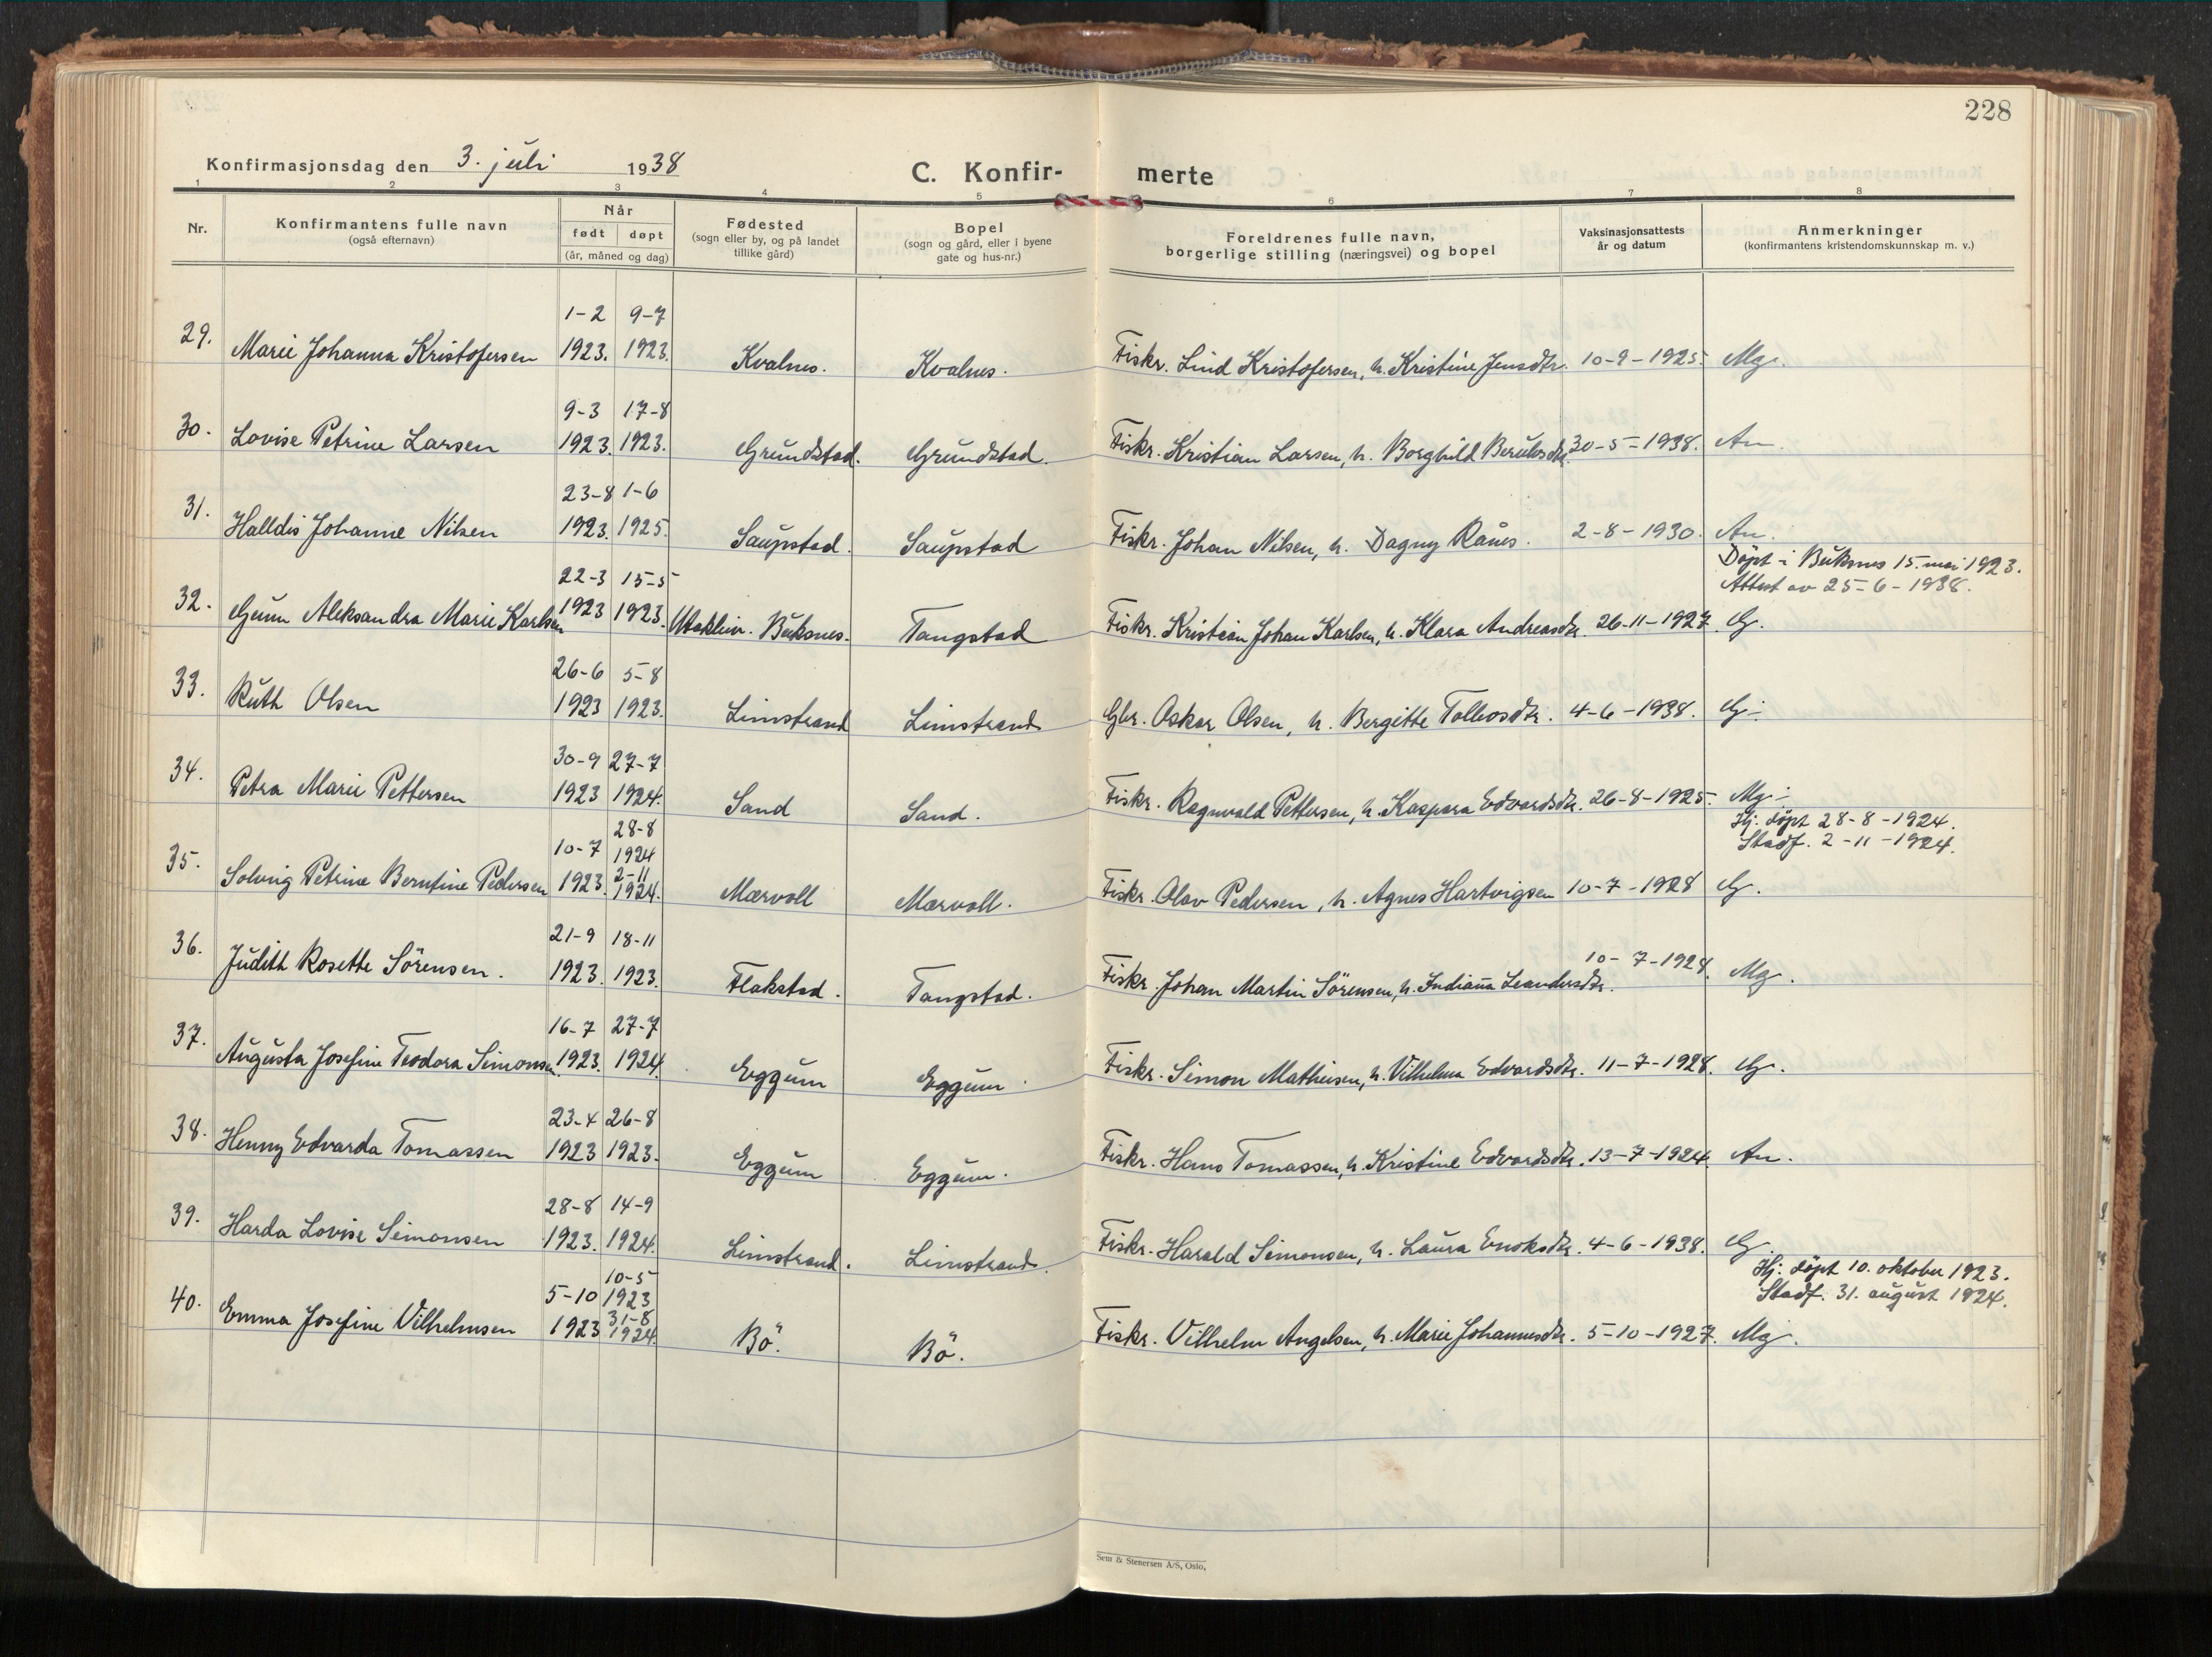 228
Konfirmasjonsdag den 3. juli 1938
C. Konfir- merte
1 2 3 4 5 6 7 8
Nr.
Konfirmantens fulle navn
(også efternavn)
Når
født døpt
(år, måned og dag)
Fødested
(sogn eller by, og på landet
tillike gård)
Bopel
(sogn og gård, eller i byene
gate og hus-nr.)
Foreldrenes fulle navn,
borgerlige stilling (næringsvei) og bopel
Vaksinasjonsattests
år og datum
Anmerkninger
(konfirmantens kristendomskunnskap m. v.)
1-2 9-7
29. Marie Johanna Kristofersen 1923. 1923. Kvalnes. Kvalnes. Fiskr. Lind Kristofersen, h. Kristine Jensdtr. 10-9-1925. Mg.
9-3 17-8
30. Lovise Petrine Larsen 1923. 1923. Grundstad. Grundstad. Fiskr. Kristian Larsen, h. Borghild 30-5-1938. An
23-8 1-6
31. Halldis Johanne Nilsen 1923. 1925. Saupstad. Saupstad Fiskr. Johan Nilsen, h. Dagny Rånes. 2-8-1930. An.
Döpt i Buksnes 15. mai 1923.
Attest av 25-6-1938.
22-3 15-5
32. Gunn Aleksandra Marie Karlsen 1923 1923. Utakleiv. Buksnes. Tangstad Fiskr. Kristian Johan Karlsen, h. Klara Andreasdtr. 26-11-1927. G.
26-6 5-8
33. Ruth Olsen 1923 1923. Limstrand Limstrand Gbr. Oskar Olsen, h. Bergitte Tollevsdtr. 4-6-1938. G.
30-9 27-7
34. Petra Marie Pettersen 1923 1924. Sand Sand. Fiskr. Ragnvald Pettersen, h. Kaspara Edvardsdtr. 26-8-1925. Mg.
Hj: döpt 28-8-1924.
Stadf. 2-11-1924.
28-8
10-7 1924
2-11
35. Solveig Petrine Berntine Pedersen 1923. 1924. Mærvoll Mærvoll. Fiskr. Olav Pedersen, h. Agnes Hartvigsen 10-7-1928 G.
21-9 18-11
36. Judith Rosette Sörensen. 1923. 1923. Flakstad. Tangstad. Fiskr. Johan Martin Sörensen, h. Indianna Leandersdtr. 10-7-1928. Mg.
16-7 27-7
37. Augusta Josefine Teodora Simonsen. 1923. 1924. Eggum Eggum. Fiskr. Simon Mathisen, h. Vilhelma Edvardsdtr. 11-7-1928. G.
23-4 26-8
38. Henny Edvarda Tomassen 1923 1923. Eggum Eggum. Fiskr. Hans Tomassen, h. Kristine Edvardsdtr. 13-7-1924. An.
28-8 14-9
39. Harda Lovise Simonsen 1923. 1924. Limstrand. Limstrand. Fiskr. Harald Simonsen, h. Laura Enoksdtr. 4-6-1938. G.
Hj: döpt 10. oktober 1923.
Stadf. 31. august 1924.
10-5
5-10 1923
31-8
40. Emma Josefine Vilhelmsen 1923 1924. Bö. Bö. Fiskr. Vilhelm Angelsen, h. Marie Johannesdtr. 5-10-1927. Mg.
Sem & Stenersen A/S, Oslo.